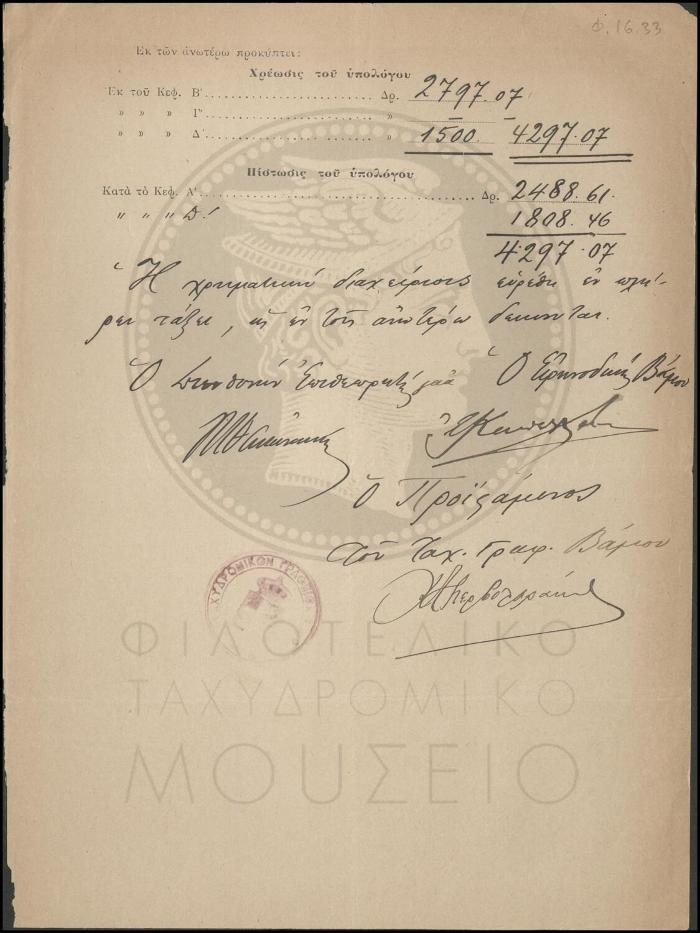 Φ. 16.33
Ἐκ τῶν ἀνωτέρω προκύπτει:
Χρέωσις τοῦ ὑπολόγου
Ἐκ τοῦ Κεφ. Β΄ Δρ. 2797.07
» » » Γ΄ » — —
» » » Δ΄ » 1500. 4297.07
Πίστωσις τοῦ ὑπολόγου
Κατὰ τὸ Κεφ. Α΄ Δρ. 2488.61.
" " " Δ΄ 1808.46
4297.07
Ἡ χρηματικὴ διαχείρισις εὑρέθη ἐν πλή-
ρει τάξει, ὡς ἐν τοῖς ἀνωτέρω δείκνυται.
Ὁ Ὁ Εἰρηνοδίκης Βάμου
Ὁ Προϊστάμενος
τοῦ Ταχ. Γραφ. Βάμου
ΤΑΧΥΔΡΟΜΙΚΟΝ ΓΡΑΦΕΙΟΝ
ΦΙΛΟΤΕΛΙΚΟ
ΤΑΧΥΔΡΟΜΙΚΟ
ΜΟΥΣΕΙΟ